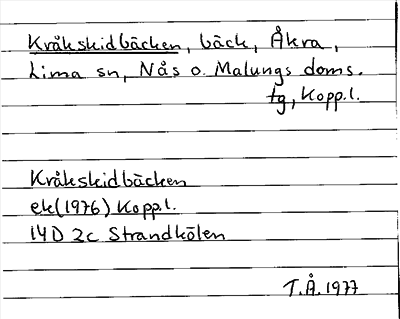 Kråkskidbäcken, bäck, Åkra,
Lima sn, Nås o. Malungs doms.
tg, Kopp.l.
Kråkskidbäcken
ek(1976) Kopp.l.
14D 2c Strandkölen
T.Å. 1977